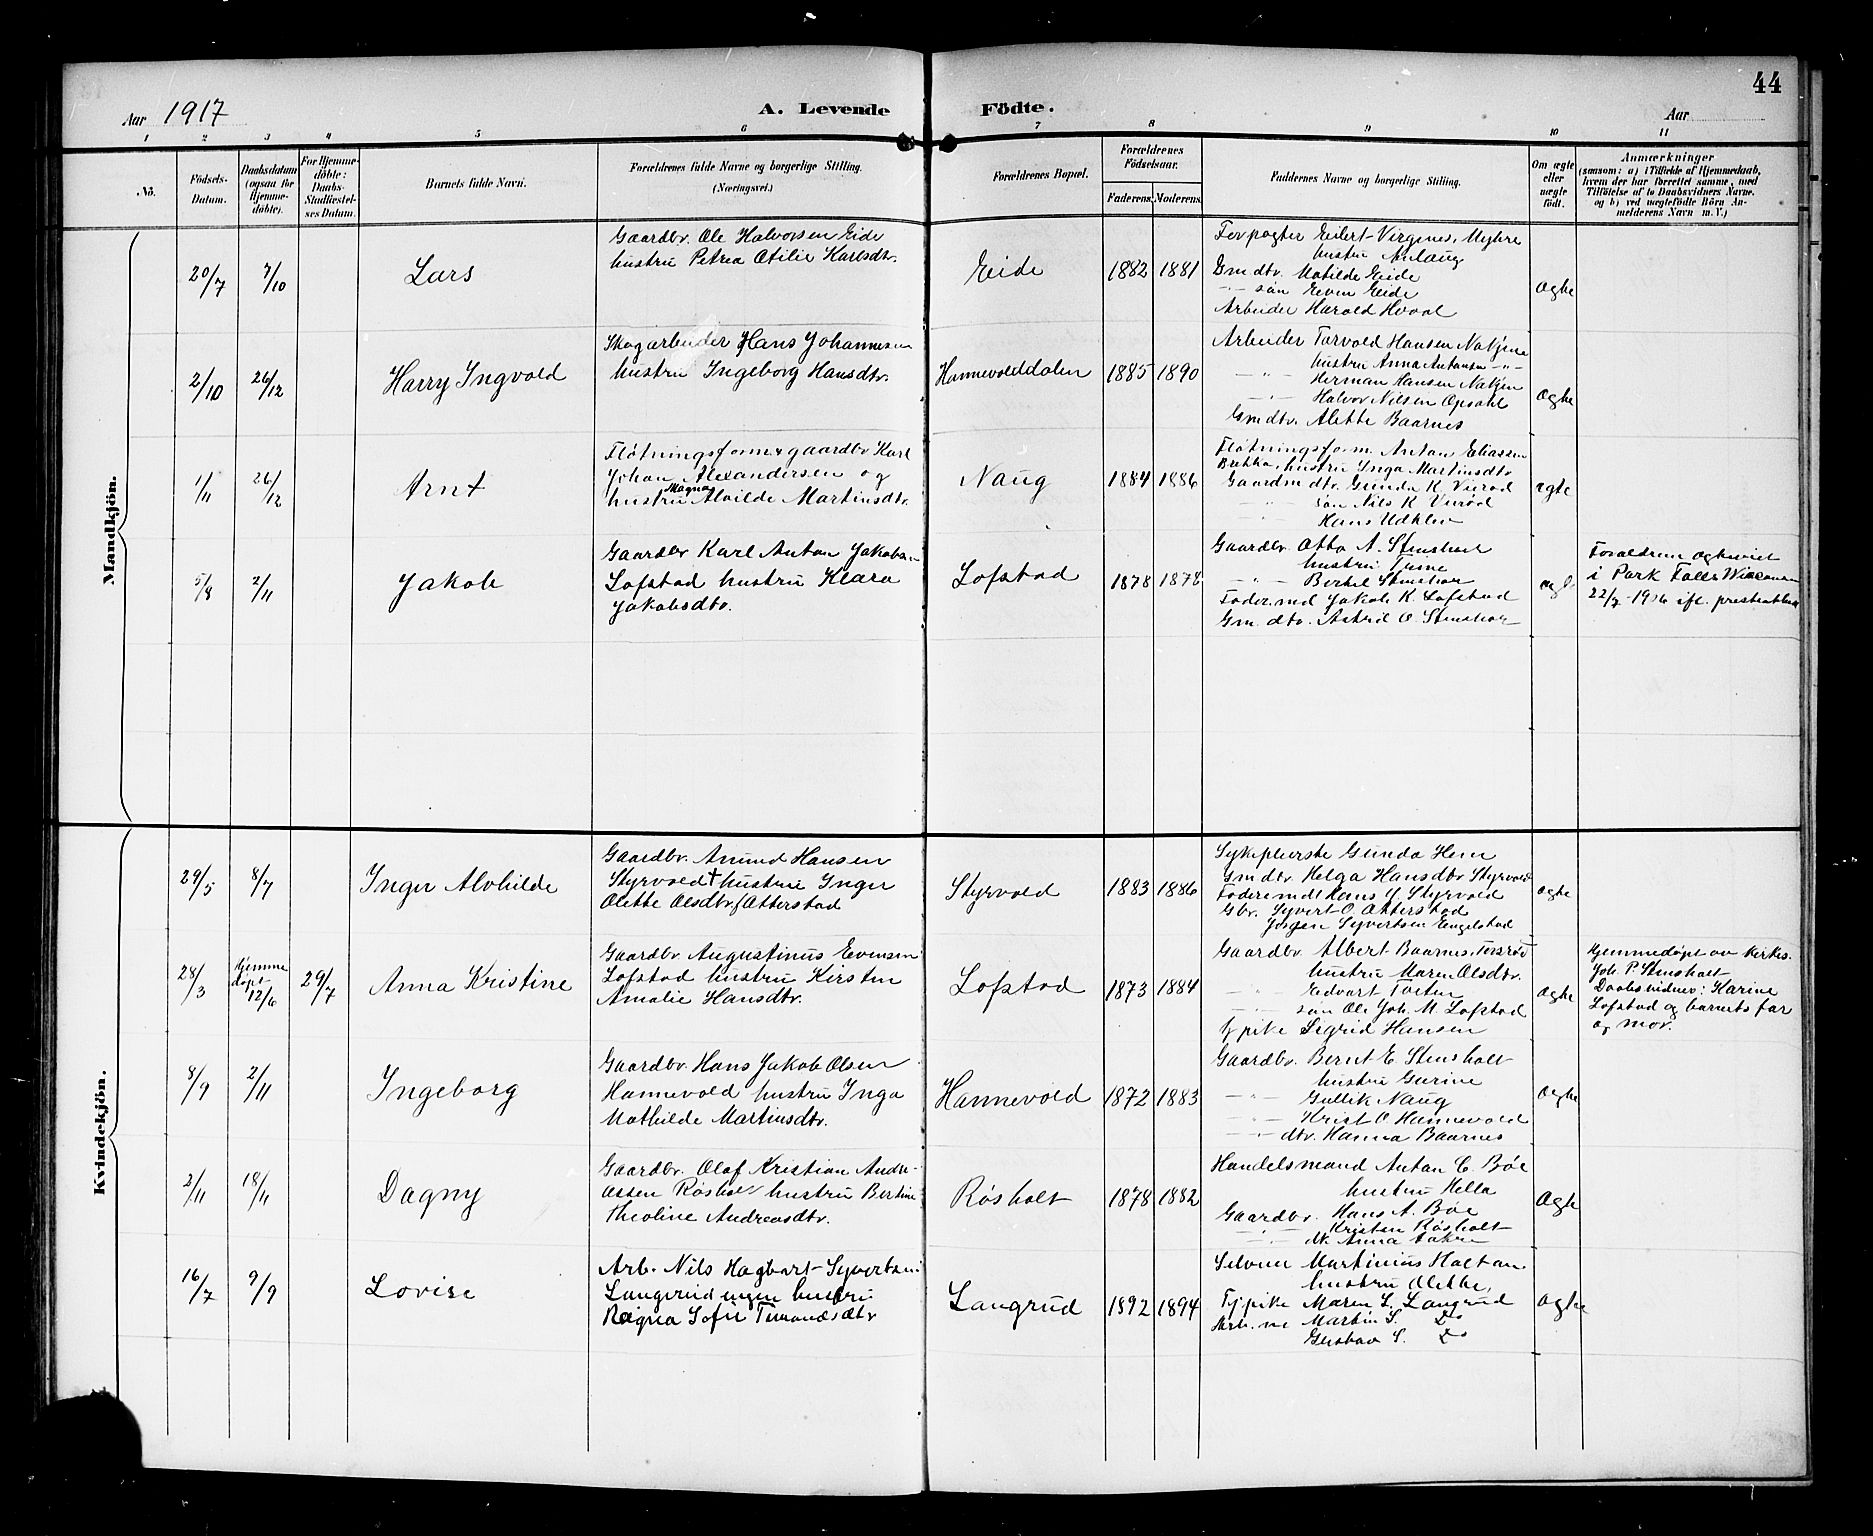 44
Aar 1917
A. Levende Födte.
Aar
1 2 3 4 5 6 7 8 9 10 11
No.
Födsels-Datum.
Daabsdatum (ogsaa for Hjemmedöbte).
For Hjemmedöbte: Daabs-Stadfæstelses Datum.
Barnets fulde Navn.
Forældrenes fulde Navne og borgerlige Stilling.
(Næringsvei.)
Forældrenes Bopæl.
Forældrenes Födselsaar.
Faderens. Moderens.
Faddernes Navne og borgerlige Stilling.
Om ægte eller uægte födt.
Anmærkninger
(saasom: a) i Tilfælde af Hjemmedaab,
hvem der har forrettet samme, med
Tilföielse af to Daabsvidners Navne,
og b) ved uægtefödte Börn An-
melderens Navn m. V.)
Mandkjön.
20/7 7/10 Lars
Gaardbr. Ole Halvorsen Eide
hustru Petrea Otilie Karlsdtr.
Eide 1882 1881
Forpagter Eilert Virgines. Myhre
hustru Aslaug
Gmdtr. Matilde Eide
-"- søn Even Eide
Arbeider Harald Hvaal
ægte
2/10 26/12 Harry Ingvald
Skogarbeider Hans Johannesen
hustru Ingeborg Hansdtr.
Hannevolddalen 1885 1890
Arbeider Torvald Hansen
hustru Anna Antonsen -"-
-"- Herman Hansen
-"- Halvor Nilsen Opsahl
Gmdtr. Alette Baarnes
ægte
1/11 26/12 Arnt
Fløtningsform. gaardbr Karl
Johan Alexandersen og
hustru Magna Alvilde Martinsdtr.
Naug 1884 1886
Fløtningsform. Anton Eliassen
Bekka, hustru Inga Martinsdtr
Gaardm dtr. Gunda K.
-"- søn Nils K.
-"- Hans
ægte
5/8 2/11 Jakob
Gaardbr Karl Anton Jakobsen
Lofstad hustru Klara
Jakobsdtr.
Lofstad 1878 1878
Gaardbr. Otto A. Stensholt
hustru
-"- Bertel
Fødermd Jakob K. Lofstad
Gm. dtr. Astrid O.
Forældrene egteviet
i Park Falls Wisconsin
22/7 1916 ifl. presteattest
Kvindekjön.
29/5 8/7 Inger Alvhilde
Gaardbr. Amund Hansen
Styrvold hustru Inger
Olette Olsdtr. f Atterstad
Styrvold 1883 1886
Sykepleierske Gunda Hem
Gmdtr. Helga Hansdtr Styrvold
Føderaadmd Hans Styrvold
Gbr. Syvert O. Atterstad
Jørgen Syvertsen Engelstad
ægte
28/3 Hjemme
døpt
12/6 29/7 Anna Kristine
Gaardbr. Augustinus Evensen
Lofstad hustru Kirsten
Amalie Hansdtr.
Lofstad 1873 1884
Gaardbr. Albert Baarnes,
hustru Maren Olsdtr.
-"- Edvart
-"- søn Ole Joh. M. Lofstad
Tj pike Sigrid Hansen
ægte
Hjemmedøpt av kirkes.
Joh. P. Stensholt
Daabsvidner: Karine
Lofstad og barnets far
og mor.
8/9 2/11 Ingeborg
Gaardbr. Hans Jakob Olsen
Hannevold hustru Inga
Mathilde Martinsdtr.
Hannevold 1872 1883
Gaardbr. Bernt E. Stensholt
hustru Gurine
-"- Gullik Naug
-"- Krist O. Hannevold
-"- dtr. Hanna Baarnes
ægte
2/11 18/11 Dagny
Gaardbr. Olaf Kristian Andre-
assen Røsholt hustru Bertine
Theoline Andreasdtr.
Røsholt 1878 1882
Handelsmand Anton C. Bøe
hustru Hella
Gaardbr. Hans A. Bøe
-"- Kristen Røsholt
Anna
ægte
16/7 9/9 Lovise
Arb. Nils Hagbart Syvertsen
Langerudingen hustru
Ragna Sofie
Langrud 1892 1894
Selveier Martinius Holtan
hustru Olette,
Tj pike Maren S. Langrud
Arb. Martin S. Do
Gustav S. Do
ægte